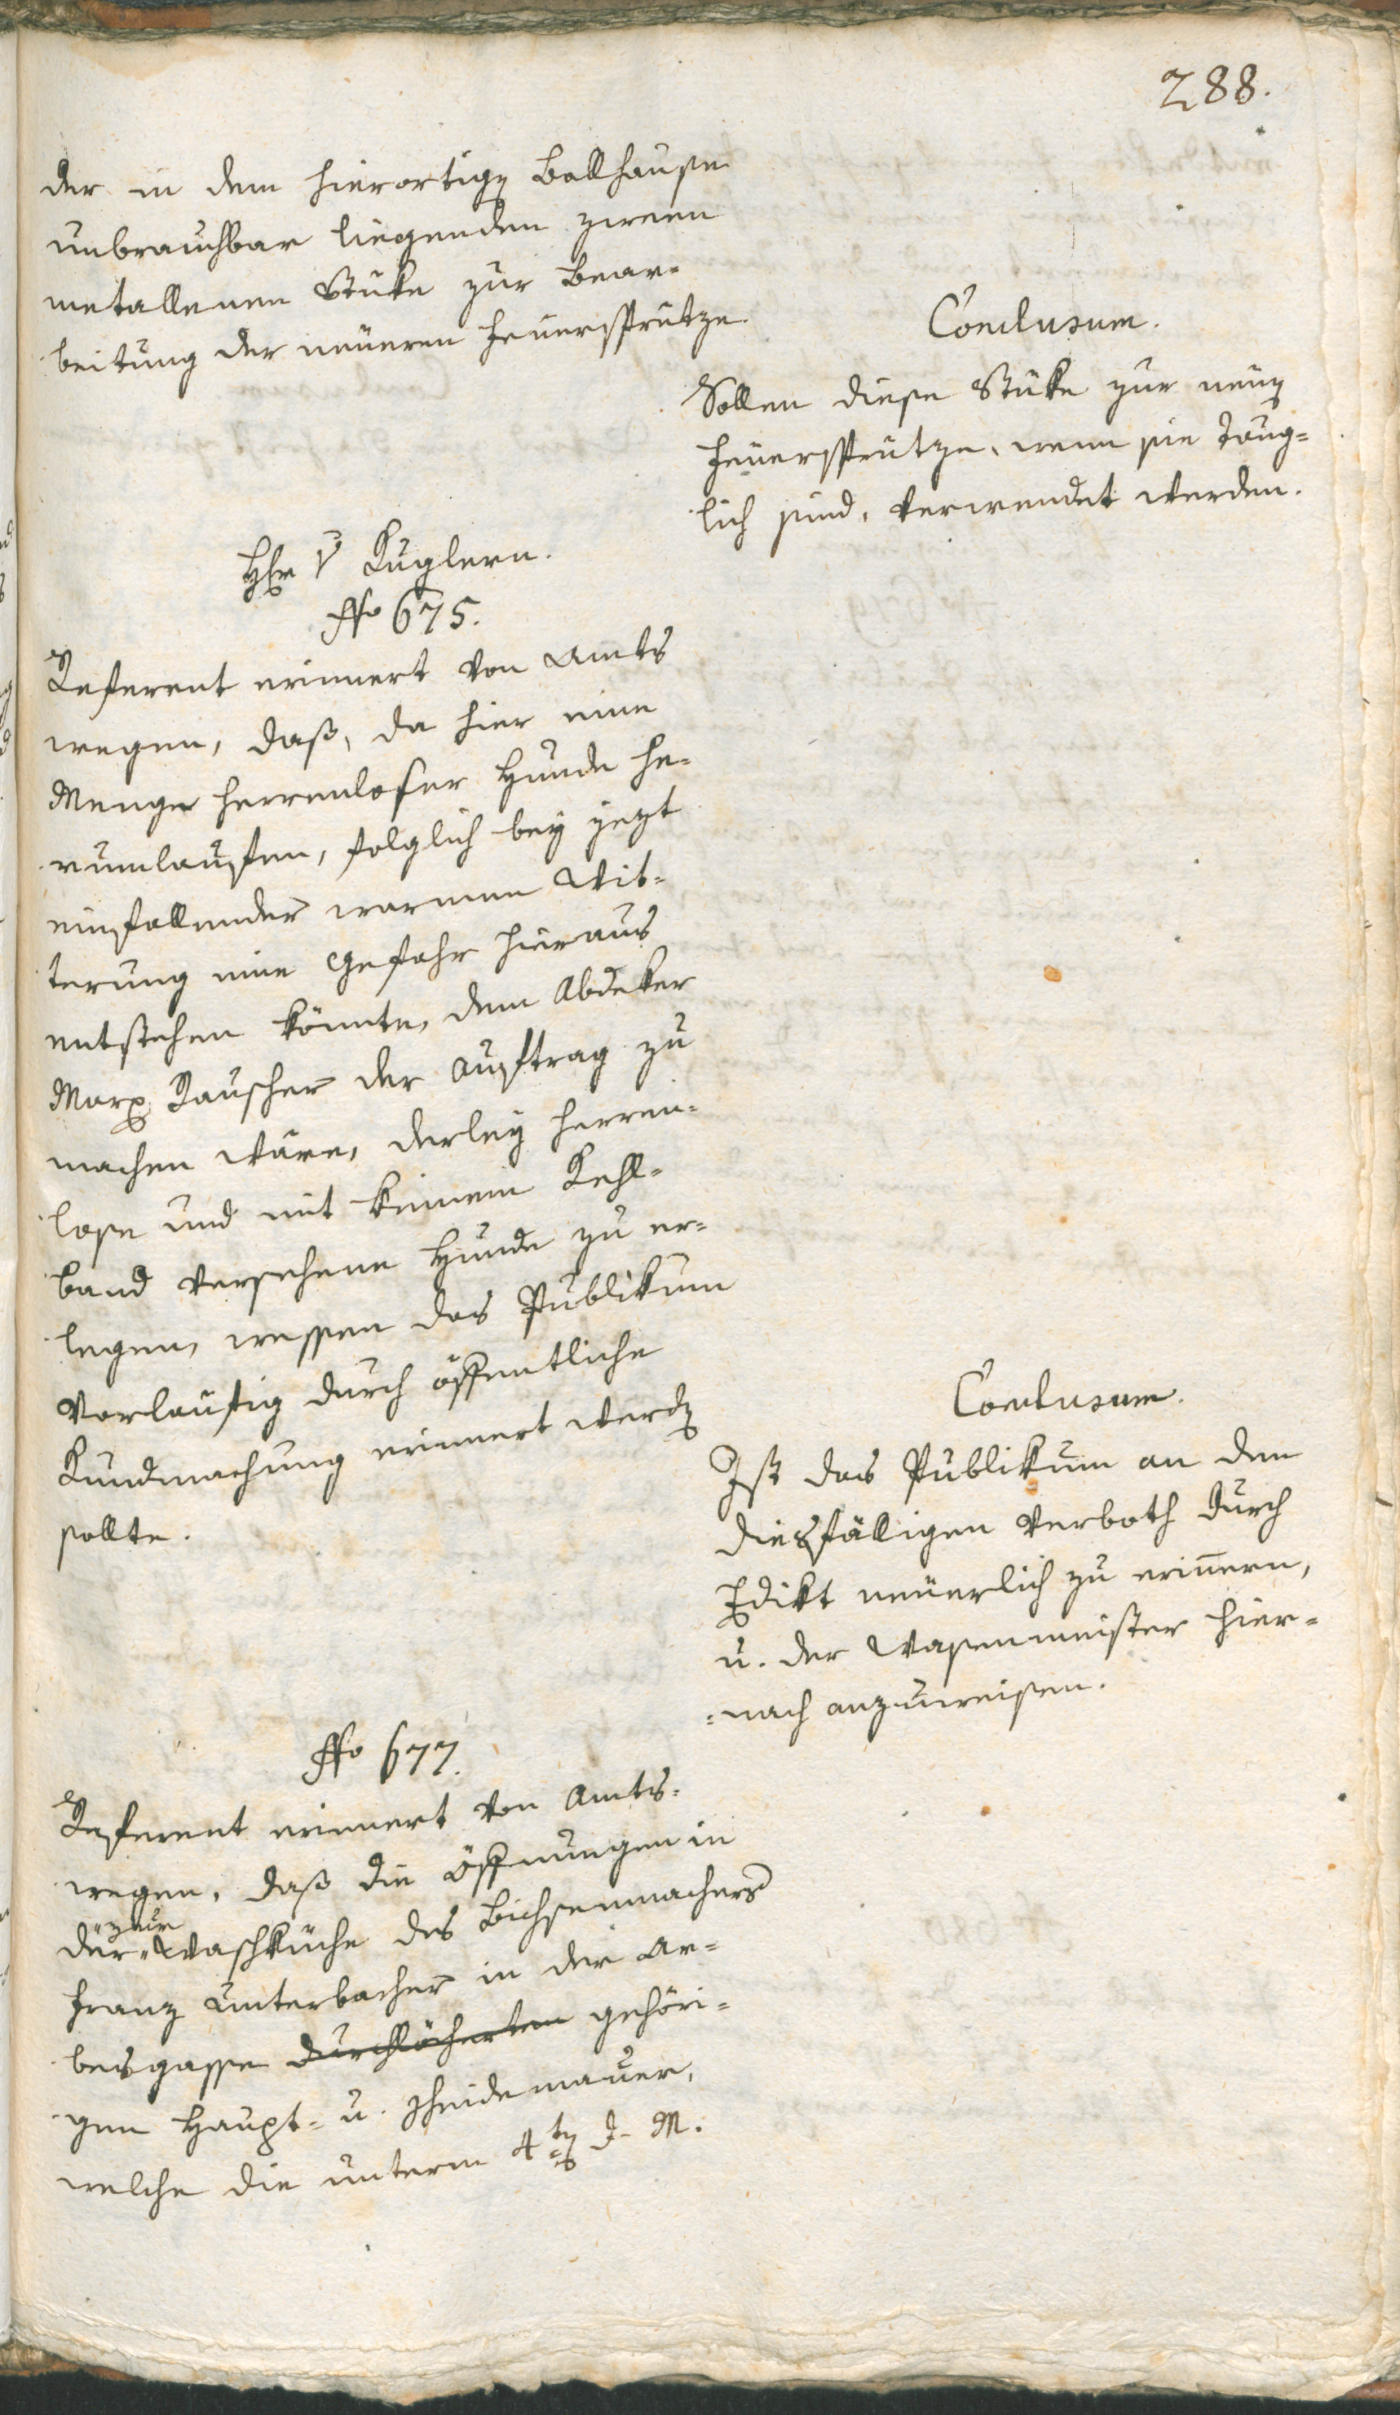 288.
der in dem hierortigen Ballhause
unbrauchbar liegenden zween
metallenen Stüke zur Bear-
beitung der neueren Feuersprützen
Conclusum.
Sollen diese Stüke zur neuen
Feuersprütze, wenn sie taug-
lich sind, verwendet werden.
Hr v Kuglern.
No 675.
Referent erinnert von Amts
wegen, daß, da hier eine
Menge herrenloser Hunde he-
rumlaufen, folglich bey jezt
einfallender warmen Wit-
terung eine Gefahr hieraus
entstehen könnte, dem Abdeker
Marx Rauscher der Auftrag zu
machen wäre, derley herren-
lose und mit keinem Kehl-
band versehene Hunde zu er-
legen, wessen das Publikum
vorläufig durch öffentliche
Kundmachung erinnert werden
sollte.
Conclusum.
Ist das Publikum an den
diesfälligen Verboth durch
Edikt neuerlich zu erinnern,
u. der Wasenmeister hier-
=nach anzuweisen.
No 677.
Referent erinnert von Amts-
wegen, daß die Öffnungen in
der zur Waschküche des Bichsenmachers
Franz Unterbacher in der Ar-
beisgasse durchlöcherten gehöri-
gen Haupt- u. Scheidemauer,
welche die unterm 4ten d. M.